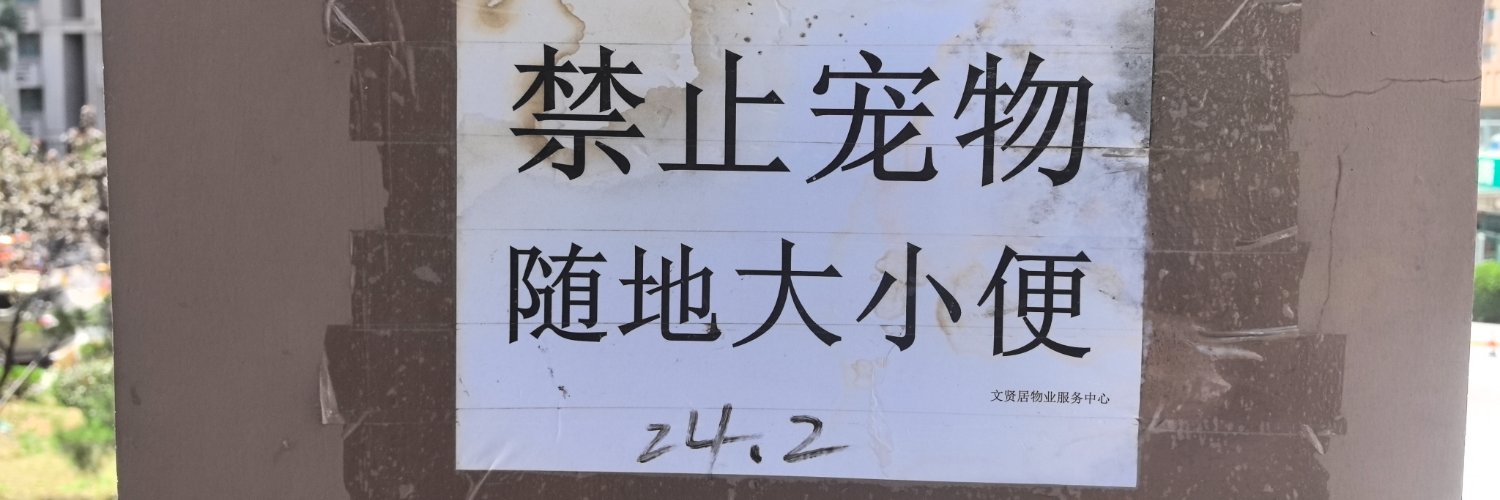 禁止宠物
随地大小便
文贤居物业服务中心
24.2